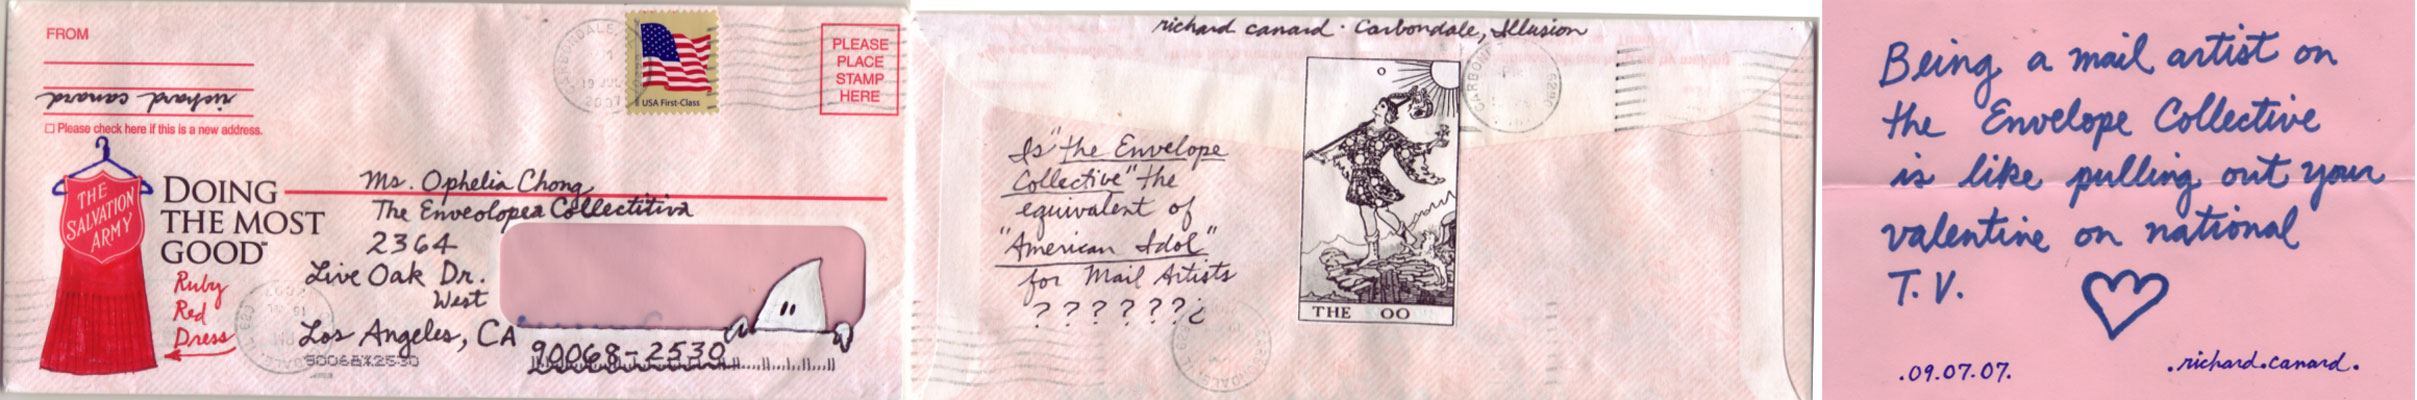 FROM
richard canard
Please check here if this is a new address.
CARBONDALE,
19 JUL
2007
USA First-Class
PLEASE
PLACE
STAMP
HERE
THE
SALVATION
ARMY
DOING
THE MOST
GOOD
Ruby
Red
Dress
Ms. Ophelia Chong
The Enveolopea Collectitiva
2364
Live Oak Dr.
West
Los Angeles, CA
90068-2530
90068*2530
richard canard · Carbondale, Illusion
Is "the Envelope
Collective" the
equivalent of
"American Idol"
for Mail Artists
??????¿
THE OO
Being a mail artist on
the Envelope Collective
is like pulling out your
valentine on national
T.V.
.09.07.07.
.richard.canard.